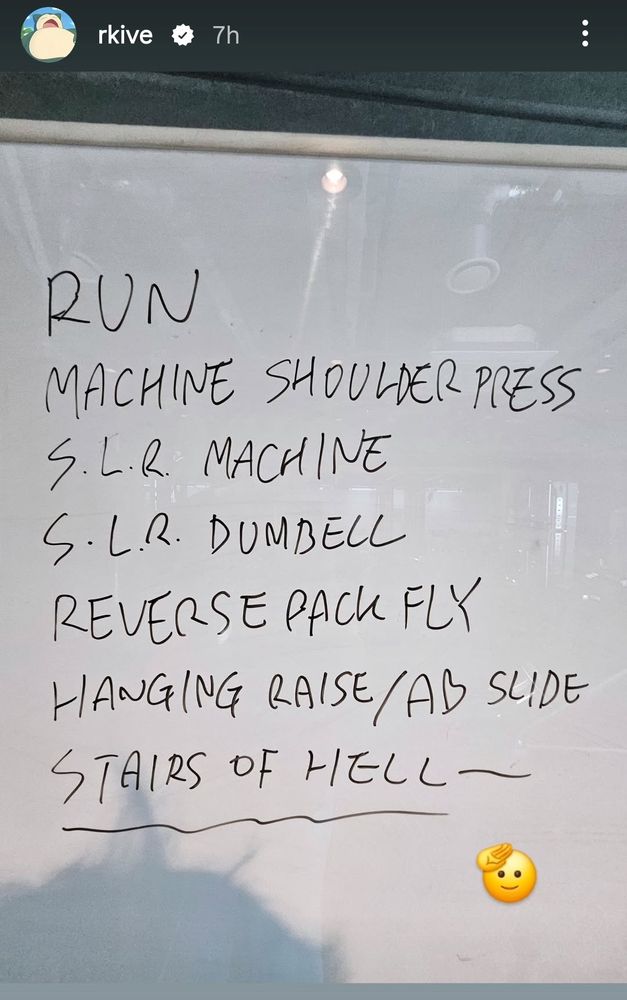 rkive 7h
RUN
MACHINE SHOULDER PRESS
S.L.R. MACHINE
S.L.R. DUMBELL
REVERSE PACK FLY
HANGING RAISE/AB SLIDE
STAIRS OF HELL